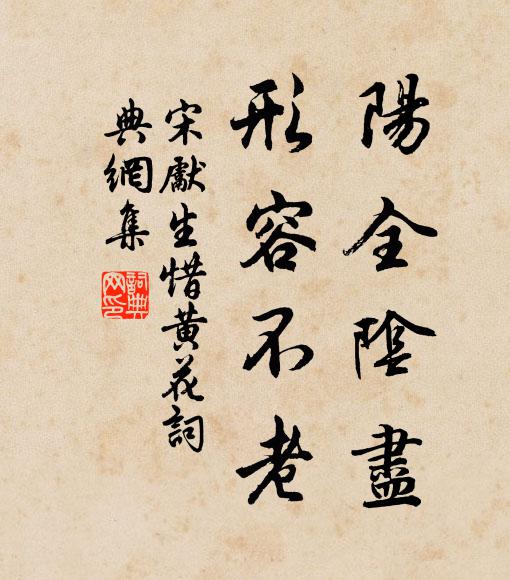 陽全陰盡
形容不老
宋獻生惜黃花詞
典網集
詞典網印